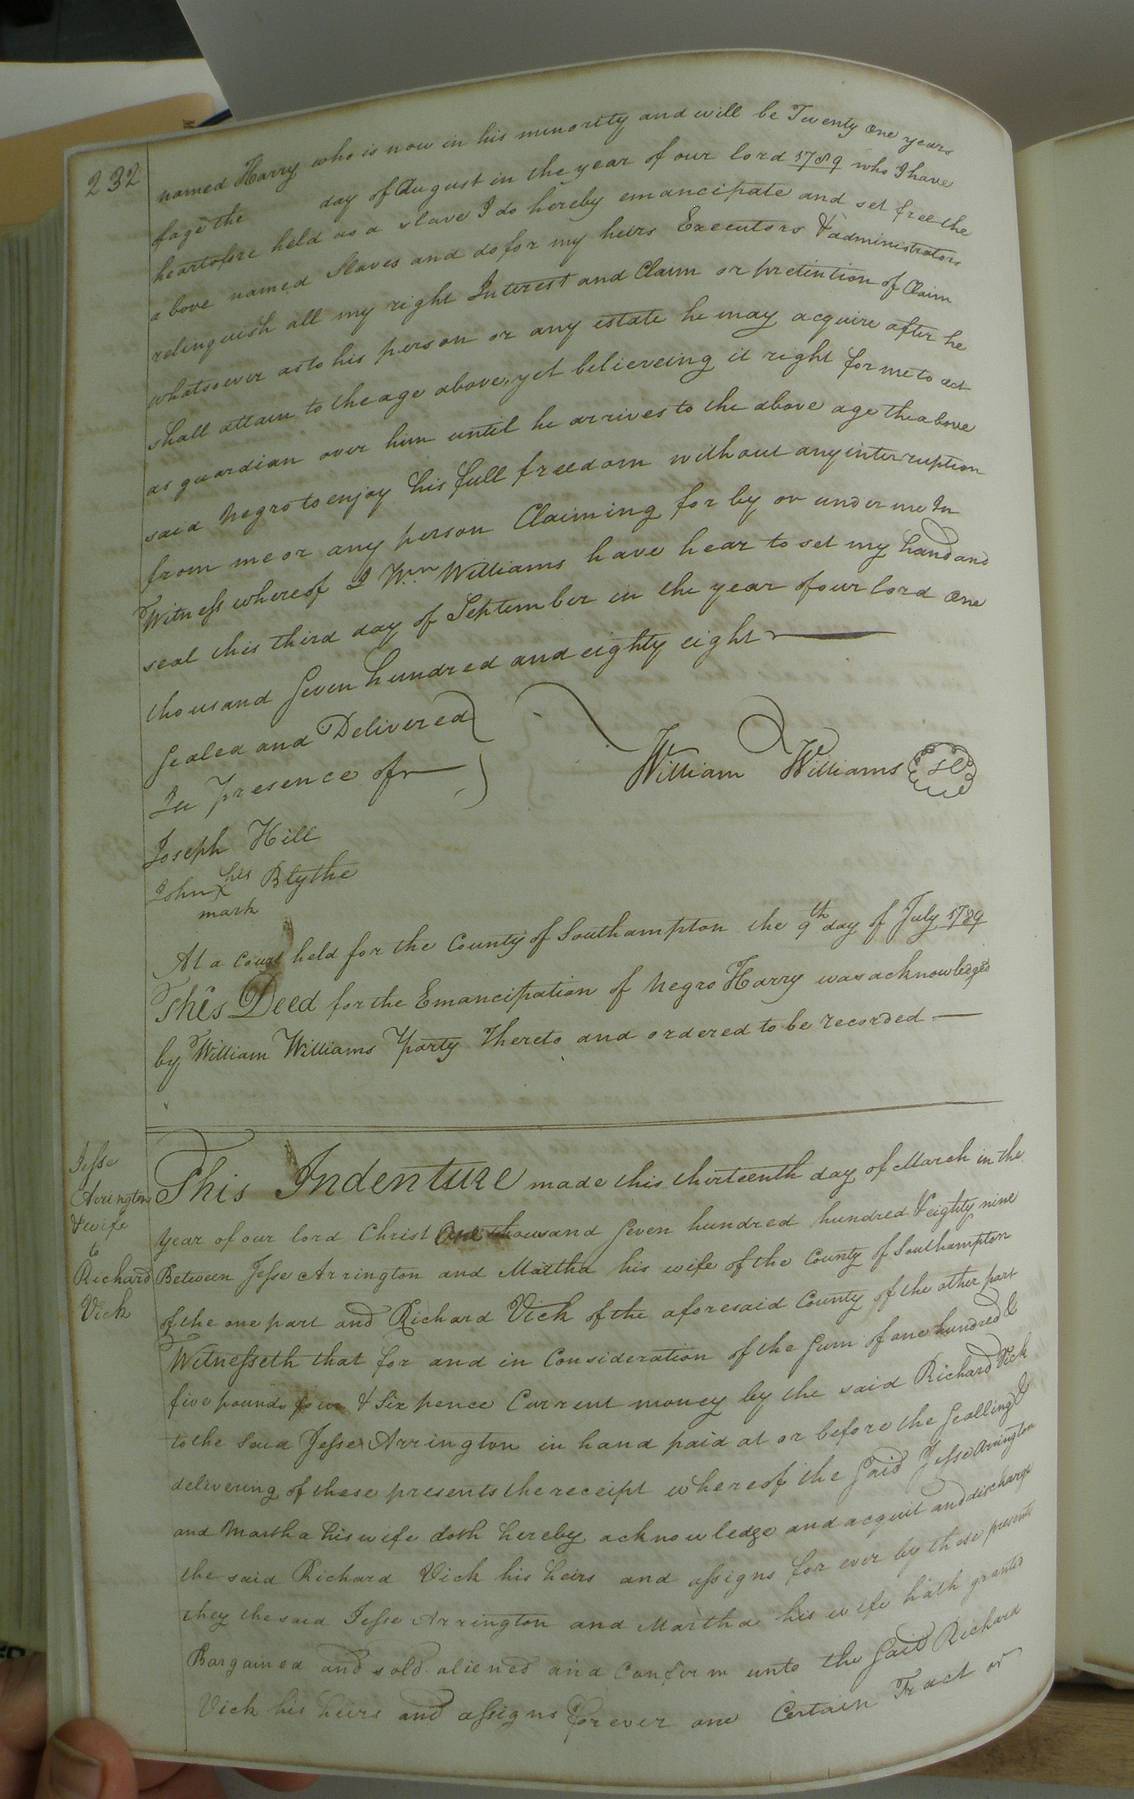 232
named Harry who is now in his minority and will be Twenty One years
of age the day of August in the year of our lord 1789 who I have
heartofore held as a slave I do hereby emancipate and set free the
above named Slaves and do for my heirs Executors & administrators
relinquish all my right Interest and Claim or pretintion of Claim
whatsoever as to his person or any estate he may acquire after he
shall attain to the age above, yet believeing it right for me to act
as guardian over him until he arrives to the above age the above
said Negro to enjoy his full freedom without any interruption
from me or any person Claiming for by or under me In
Witness whereof I Wm Williams have hear to set my hand and
seal this third day of September in the year of our lord One
thousand Seven hundred and eighty eight
Sealed and Delivered
In presence of
William Williams
Joseph Hill
his
John X Blythe
mark
At a Court held for the County of Southampton the 9th day of July 1789
This Deed for the Emancipation of Negro Harry was acknowledged
by William Williams party Thereto and ordered to be recorded
Jesse
Arrington
& wife
to
Richard
Vick
This Indenture made this thirteenth day of March in the
year of our lord Christ One thousand Seven hundred hundred & eighty nine
Between Jesse Arrington and Martha his wife of the County of Southampton
of the one part and Richard Vick of the aforesaid County of the other part
Witnesseth that for and in Consideration of the Sum of one hundred &
five pounds & Six pence Current money by the said Richard Vick
to the said Jesse Arrington in hand paid at or before the Sealling &
delivering of these presents the receipt whereof the Said Jesse Arrington
and Martha his wife doth hereby acknowledge and acquit and discharge
the said Richard Vick his heirs and assigns for ever by these presents
they the said Jesse Arrington and Martha his wife hath granted
Bargained and sold aliened and Confirm unto the Said Richard
Vick his heirs and assigns forever one Certain Tract or